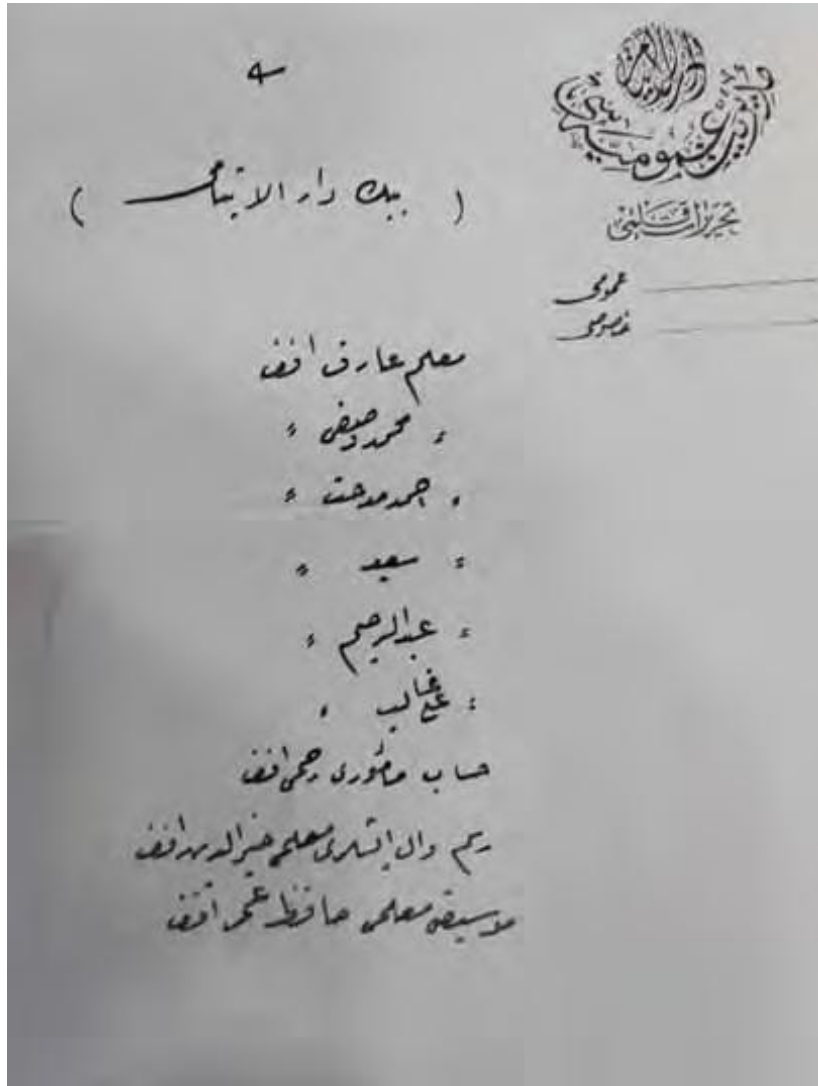 دار الايتام
مديريت عموميه سى
تحريرات قلمى
عمومى
خصوصى
( ببك دار الايتامى )
معلم عارف افند
〃 محمد وصفى 〃
〃 احمد مدحت 〃
〃 سعيد 〃
〃 عبدالرحيم 〃
〃 على غالب 〃
حساب مأمورى رحمى افند
رسم وال ايشلرى معلمى خيرالدين افند
موسيقى معلمى حافظ عمر افند